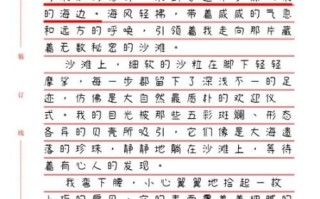 的海边。海风轻拂，带着咸咸的气息
和远方的呼唤，引领着我走向那片藏
着无数秘密的沙滩。
沙滩上，细软的沙粒在脚下轻轻
摩挲，每一步都留下了深浅不一的足
迹，仿佛是大自然最质朴的欢迎仪
式。我的目光被那些五彩斑斓、形态
各异的贝壳所吸引，它们像是大海遗
落的珍珠，静静地躺在沙滩上，等待
着有心人的发现。
我弯下腰，小心翼翼地拾起一枚
装
订
线